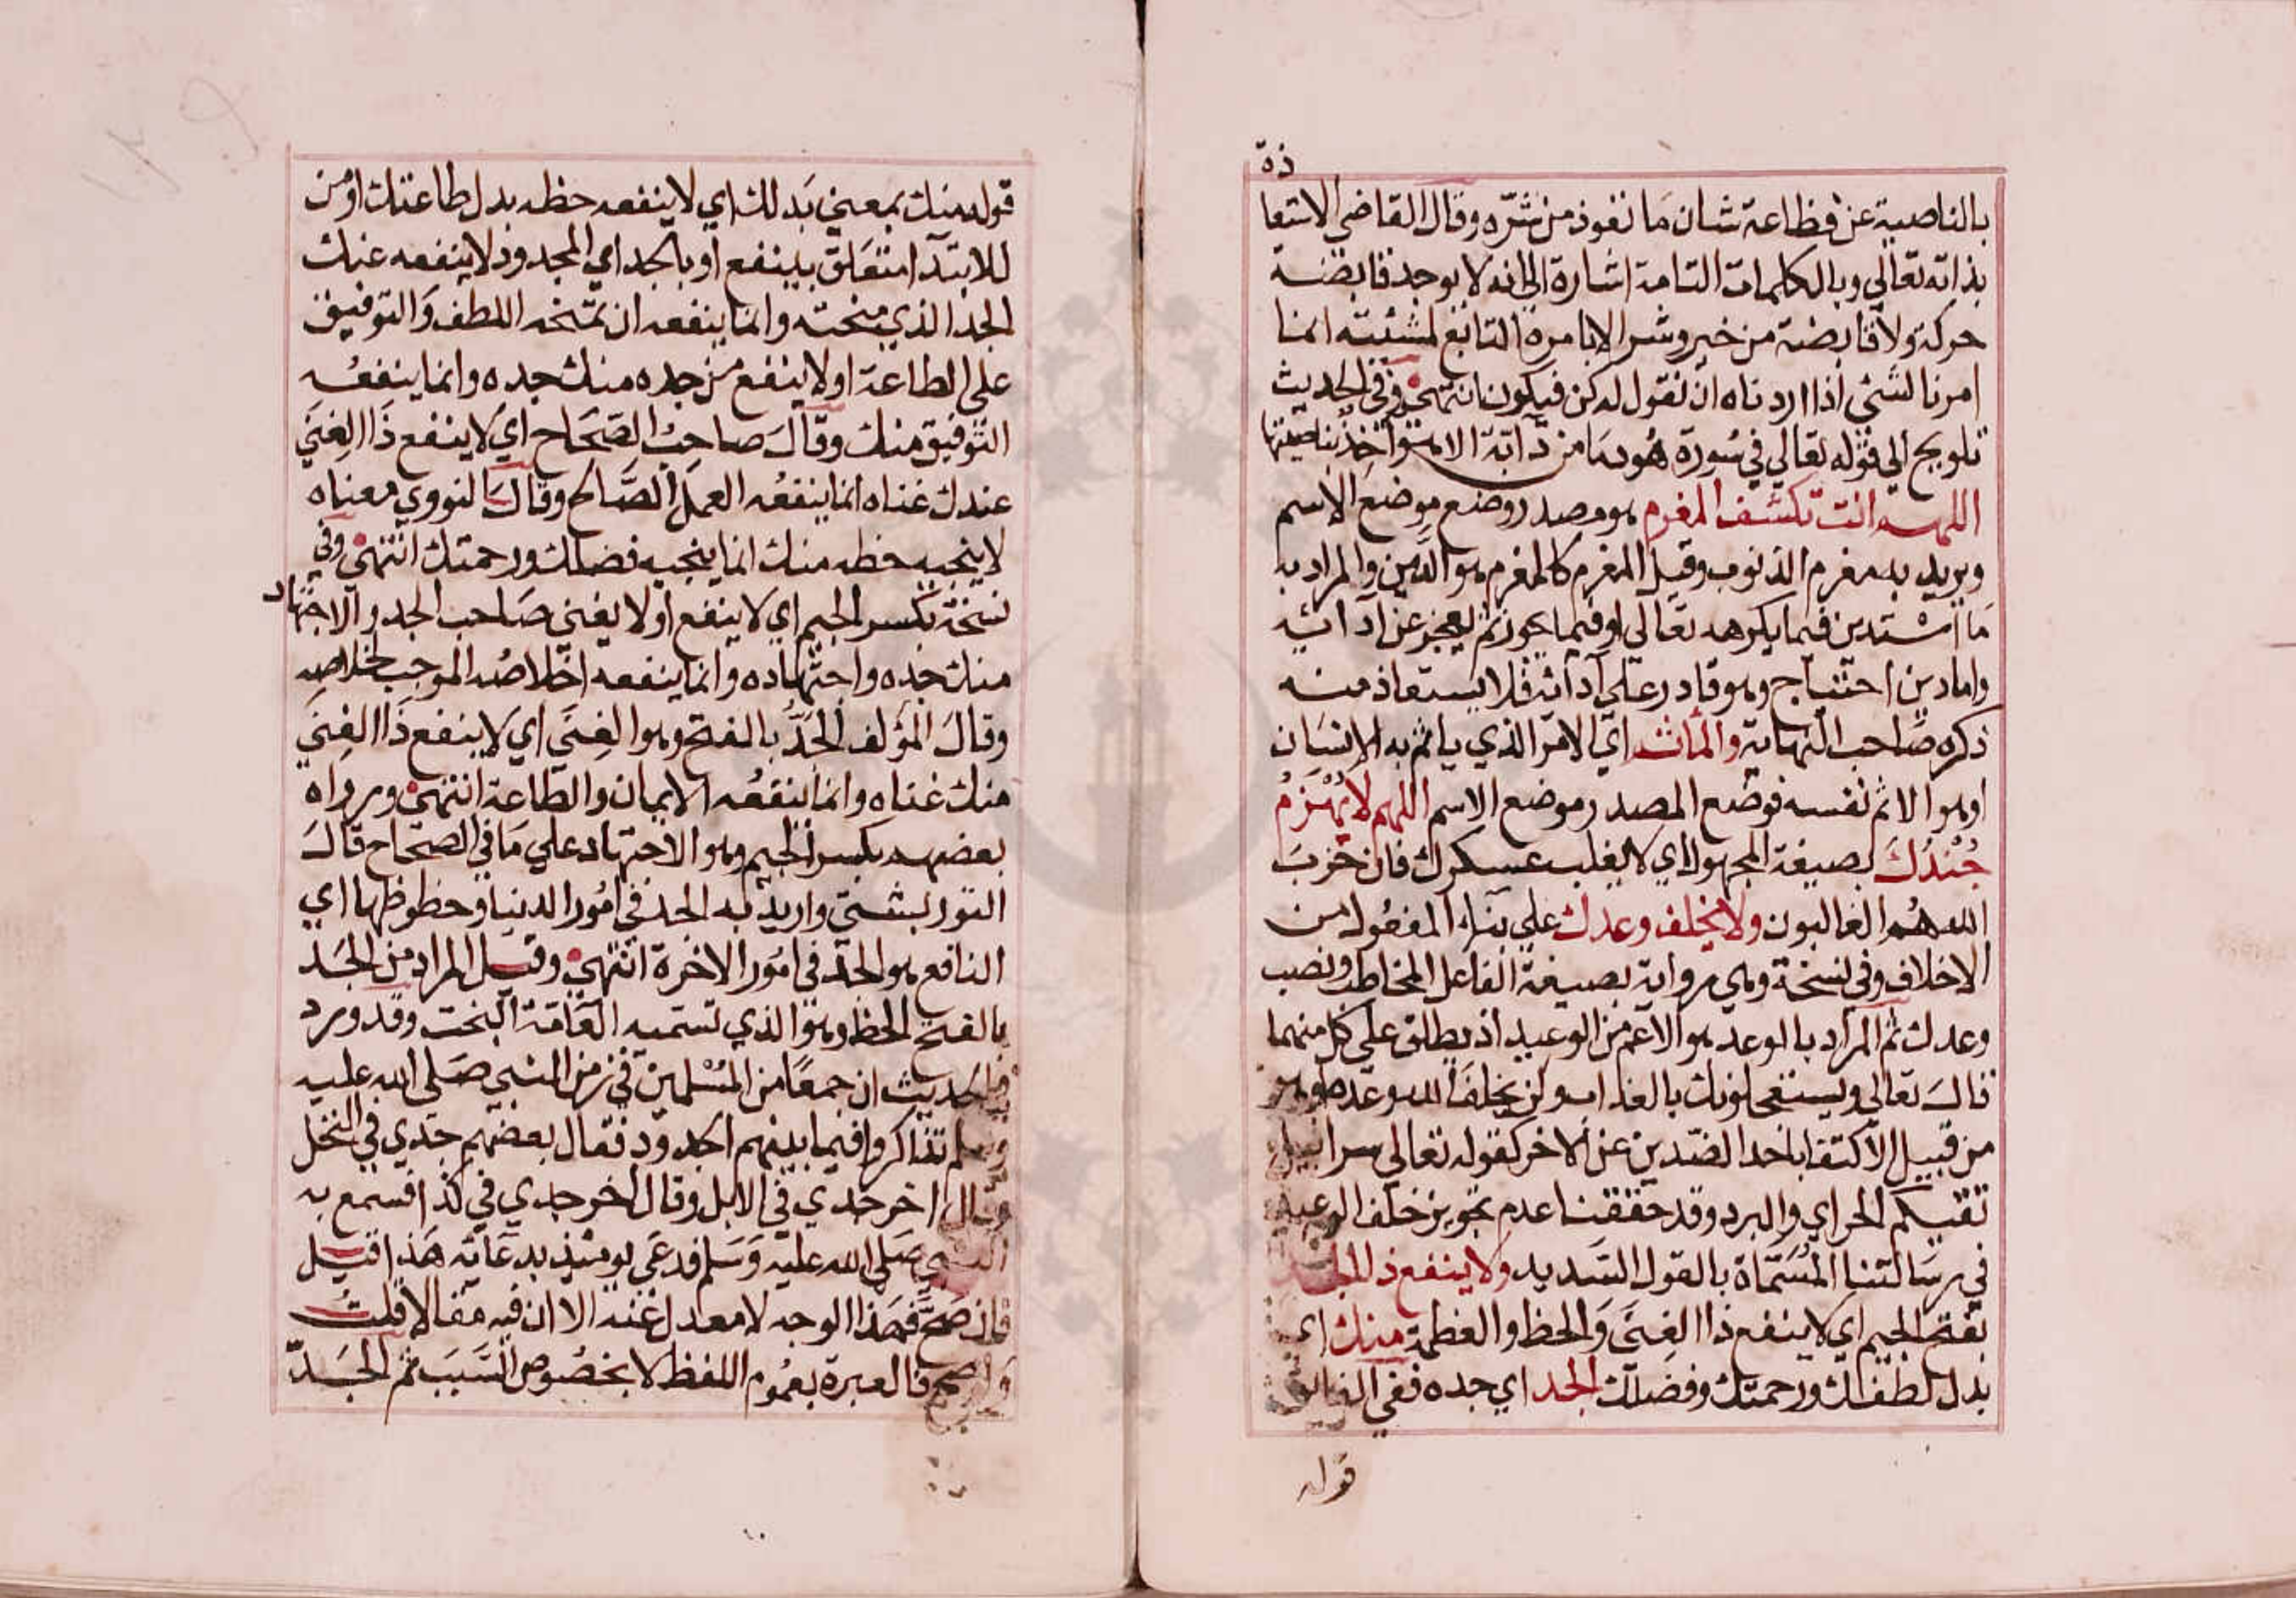 ذة
بالناصية عن فظاعة شان ما نعوذ من شره وقال القاضي الاستعا
بذاته تعالي وبالكلمات التامة اشارة الي انه لا يوجد قابضة
حركة ولا قابضة من خير وشر الا بامره التابع لمشيئته انما
امرنا لشئ اذا اردناه ان نقول له كن فيكون انتهي وفي الحديث
تلويح الي قوله تعالي في سورة هود ما من دابة الا هو اخذ بناصيتها
اللهم انت تكشف المغرم هو مصدر وضع موضع الاسم
ويريد به مغرم الذنوب وقيل المغرم كالغرم وهو الدين والمراد به
ما استدين فيما يكرهه تعالي او فيما يجوز ثم يعجز عن ادائه
واما دين احتياج وهو قادر علي ادائه فلا يستعاذ منه
ذكره صاحب النهاية والمأثم اي الامر الذي ياثم به الانسان
او هو الاثم نفسه فوضع المصدر موضع الاسم اللهم لا يُهْزَمُ
جُنْدُكَ بصيغة المجهول اي لا يغلب عسكرك فان حزب
الله هم الغالبون ولا يخلف وعدك علي بناء المفعول من
الاخلاف وفي نسخة وهي رواية بصيغة الفاعل المخاطب ونصب
وعدك ثم المراد بالوعد هو الاعم من الوعيد اذ يطلق علي كل منهما
قال تعالي ويستعجلونك بالعذاب ولن يخلف الله وعده او هو
من قبيل الاكتفا باحد الضدين عن الاخر كقوله تعالي سرابيل
تقيكم الحر اي والبرد وقد حققنا عدم تجويز خلف الوعيد
في رسالتنا المسماة بالقول السديد ولا ينفع ذا الجد
بفتح الجيم اي لا ينفع ذا الغني والحظ والعظمة منك اي
بدل لطفك ورحمتك وفضلك الجد اي جده ففي الفائق
قوله
قوله منك بمعني بدلك اي لا ينفعه حظه بدل طاعتك او من
للابتدا متعلق بينفع او بالجد اي المجدود لا ينفعه عنك
الجد الذي منحته وانما ينفعه ان تمنحه اللطف والتوفيق
علي الطاعة او لا ينفع من جده منك جده وانما ينفعه
التوفيق منك وقال صاحب الصحاح اي لا ينفع ذا الغني
عندك غناه انما ينفعه العمل الصالح وقال النووي معناه
لا ينجيه حظه منك انما ينجيه فضلك ورحمتك انتهي وفي
نسخة بكسر الجيم اي لا ينفع او لا يغني صاحب الجد والاجتهاد
منك جده واجتهاده وانما ينفعه اخلاصه الموجب لخلاصه
وقال المؤلف الجد بالفتح وهو الغني اي لا ينفع ذا الغني
منك غناه وانما ينفعه الايمان والطاعة انتهي ورواه
بعضهم بكسر الجيم وهو الاجتهاد علي ما في الصحاح قال
التوربشتي واريد به الجد في امور الدنيا وحظوظها اي
النافع هو الجد في امور الاخرة انتهي وقيل المراد من الجد
بالفتح الحظ وهو الذي تسميه العامة البخت وقد ورد
في الحديث ان جمعا من المسلمين في زمن النبي صلي الله عليه
وسلم تذاكروا فيما بينهم الجدود فقال بعضهم جدي في النخل
وقال اخر جدي في الابل وقال اخر جدي في كذا فسمع به
النبي صلي الله عليه وسلم فدعي يومئذ بدعائه هذا قيل
فان صح فهذا الوجه لا معدل عنه الا ان فيه مقالا قلت
وان صح فالعبرة بعموم اللفظ لا بخصوص السبب ثم الجد